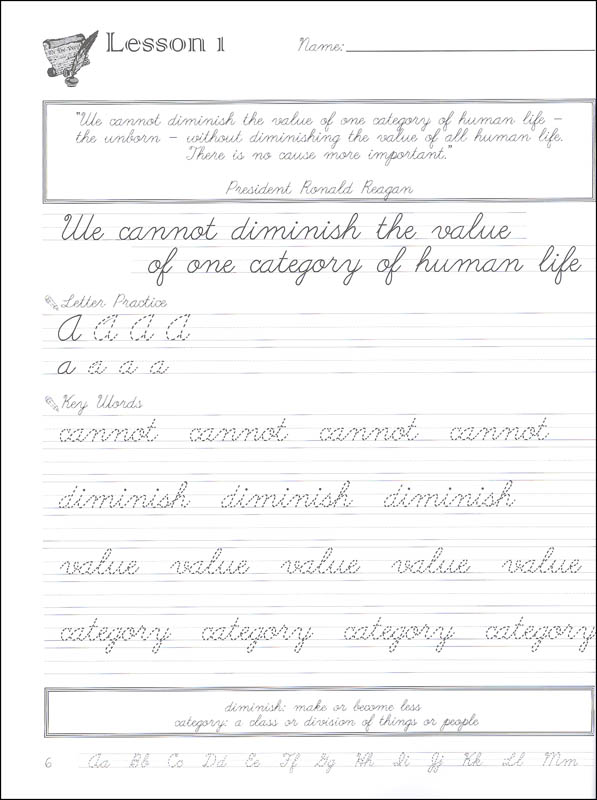 Lesson 1
Name:
"We cannot diminish the value of one category of human life –
the unborn – without diminishing the value of all human life.
There is no cause more important."
President Ronald Reagan
We cannot diminish the value
of one category of human life
Letter Practice
A A A A
a a a a
Key Words
cannot cannot cannot cannot
diminish diminish diminish
value value value value value
category category category category
diminish: make or become less
category: a class or division of things or people
6 Aa Bb Cc Dd Ee Ff Gg Hh Ii Jj Kk Ll Mm